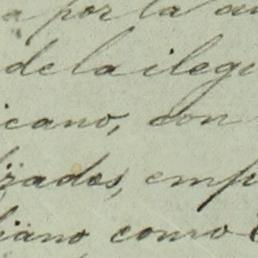 a por la
de la ilegi
icano, con
zados, emp
iano como